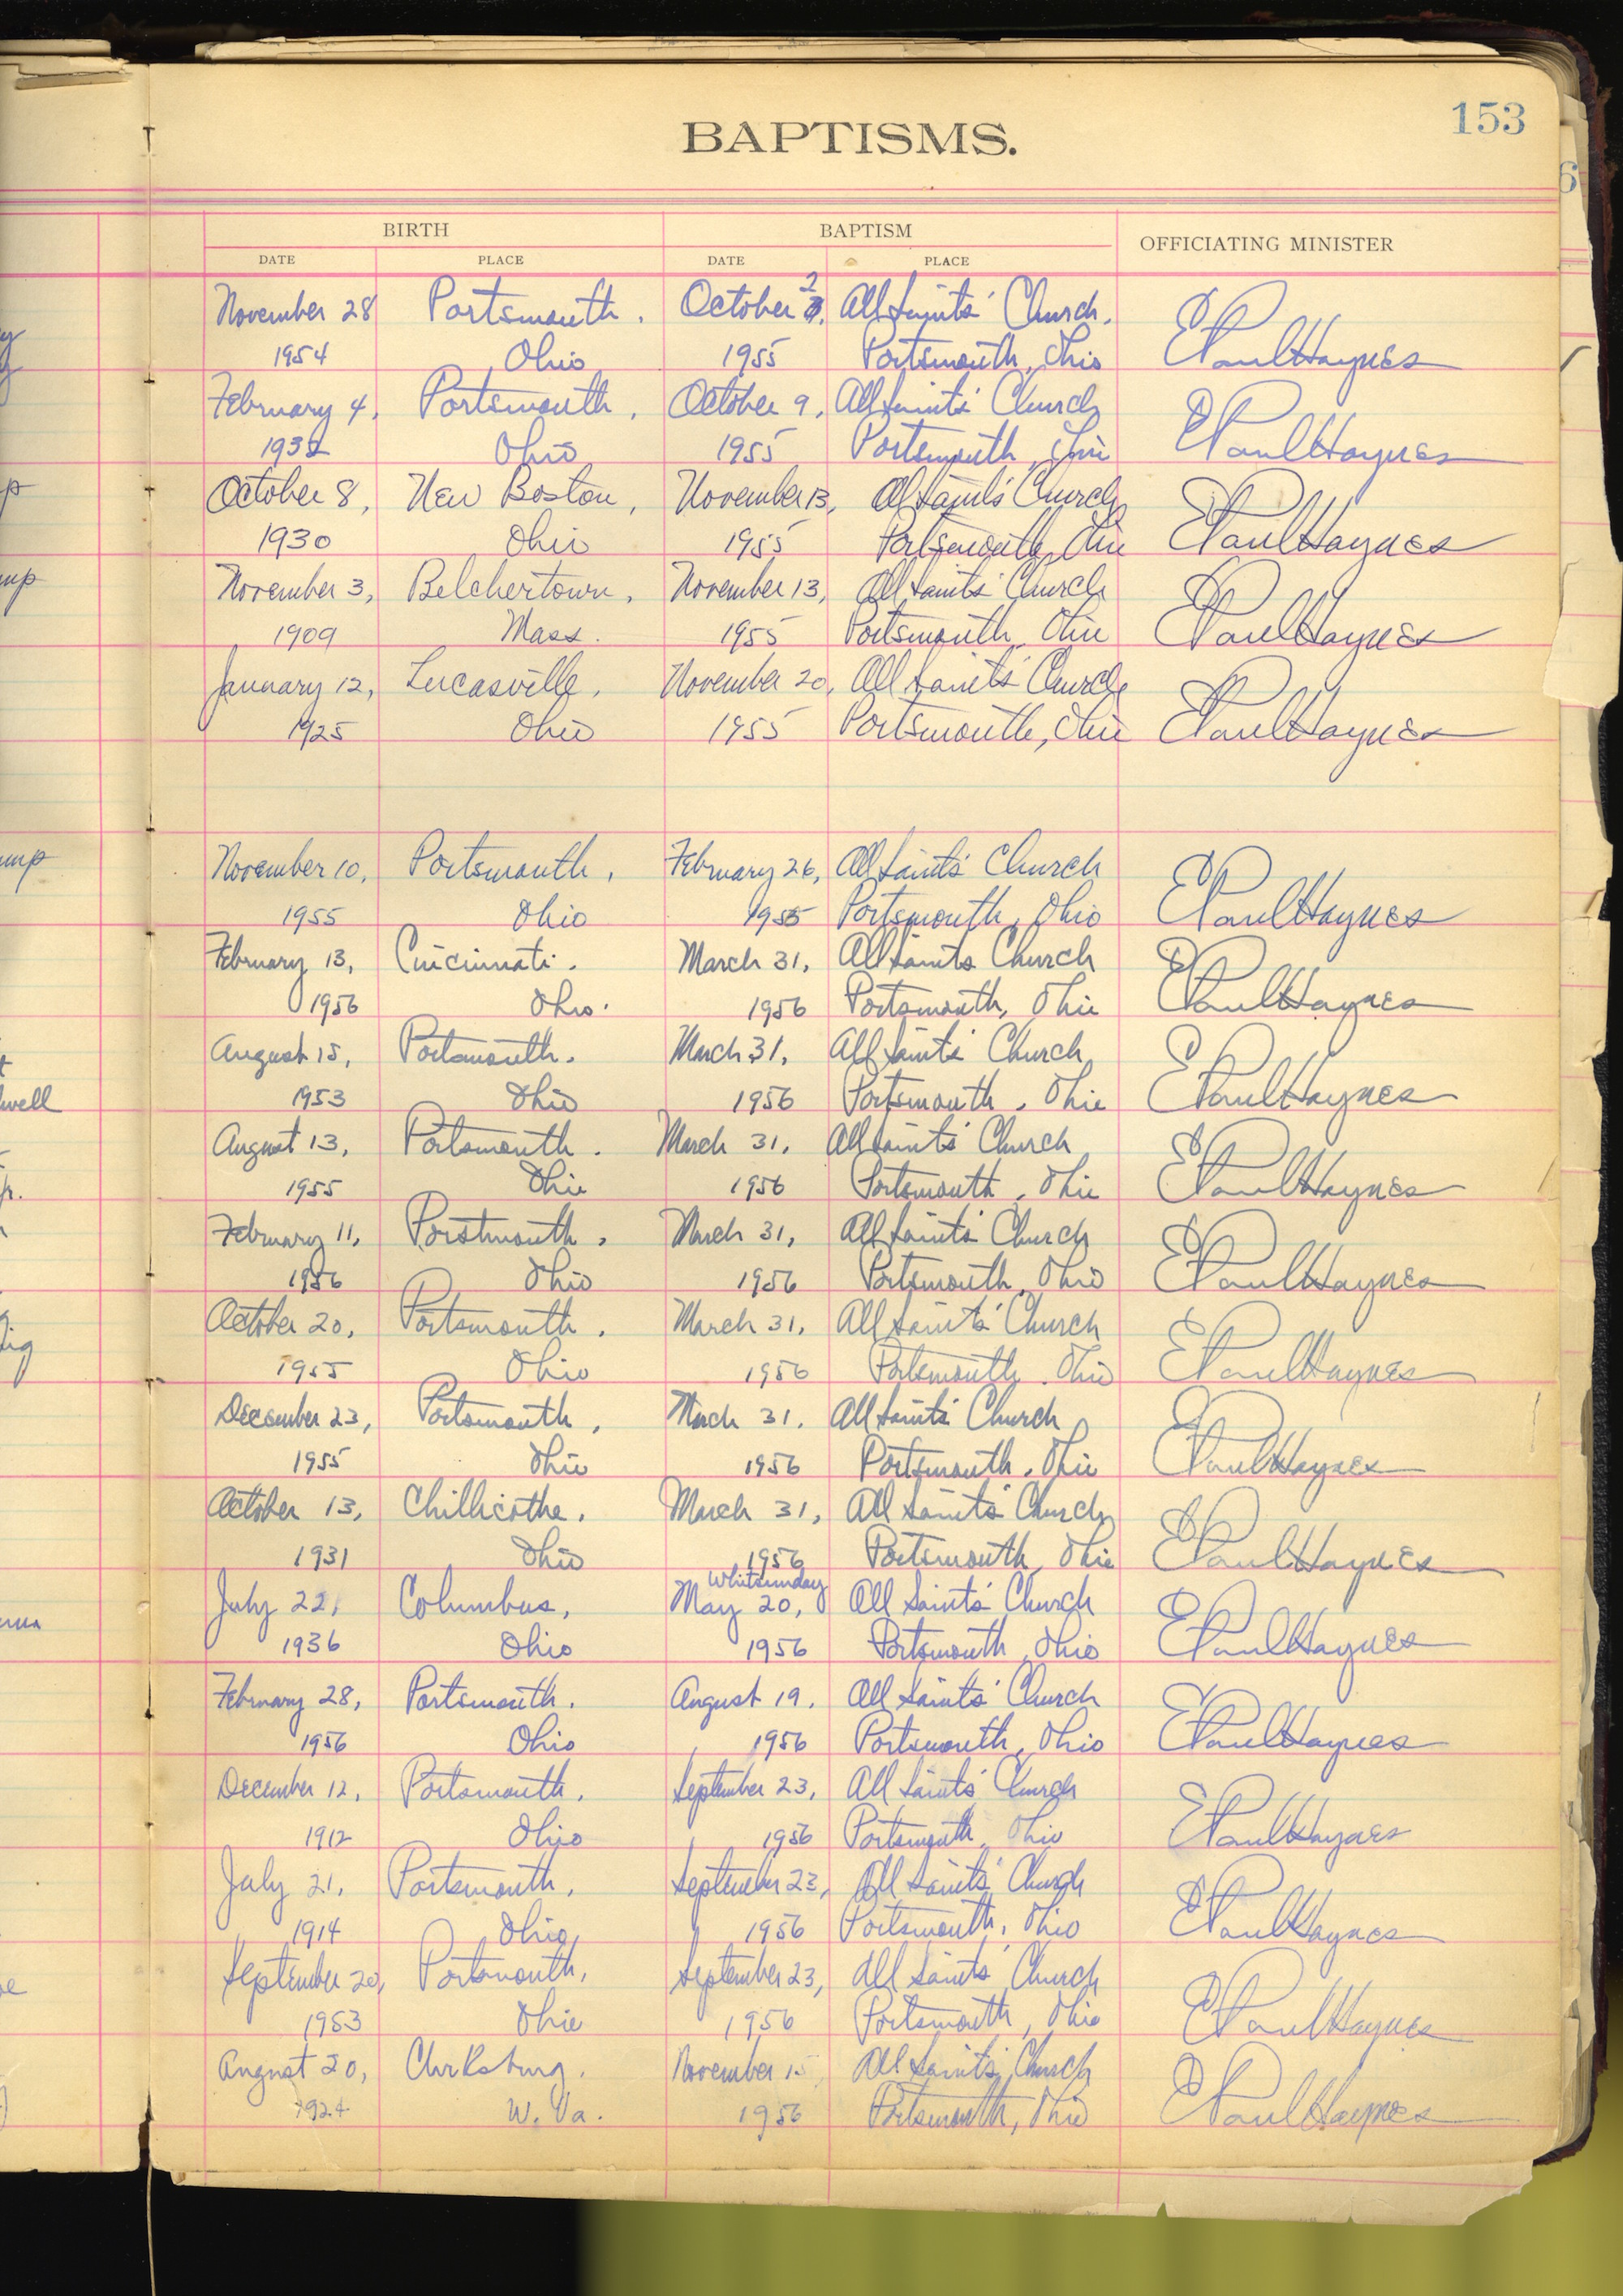 153
BAPTISMS.
BIRTH BAPTISM OFFICIATING MINISTER
DATE PLACE DATE PLACE
November 28 Portsmouth, October 2, All Saints' Church,
1954 Ohio 1955 Portsmouth, Ohio E Paul Haynes
February 4, Portsmouth, October 9, All Saints' Church
Ohio 1955 Portsmouth, Ohio E Paul Haynes
October 8, New Boston, November 13, All Saints' Church
1930 Ohio 1955 Portsmouth, Ohio E Paul Haynes
November 3, Belchertown, November 13, All Saints' Church
1909 Mass. 1955 Portsmouth, Ohio E Paul Haynes
January 12, Lucasville, November 20, All Saints' Church
1925 Ohio 1955 Portsmouth, Ohio E Paul Haynes
November 10, Portsmouth, February 26, All Saints' Church
1955 Ohio Portsmouth, Ohio E Paul Haynes
February 13, Cincinnati, March 31, All Saints Church
1956 Ohio. 1956 Portsmouth, Ohio E Paul Haynes
August 15, Portsmouth, March 31, All Saints' Church
1953 Ohio 1956 Portsmouth, Ohio E Paul Haynes
August 13, Portsmouth, March 31, All Saints' Church
1955 Ohio 1956 Portsmouth, Ohio E Paul Haynes
February 11, Porstmouth, March 31, All Saints' Church
1956 Ohio 1956 Portsmouth, Ohio E Paul Haynes
October 20, Portsmouth, March 31, All Saints' Church
1955 Ohio 1956 Portsmouth, Ohio E Paul Haynes
December 23, Portsmouth, March 31, All Saints' Church
1955 Ohio 1956 Portsmouth, Ohio E Paul Haynes
October 13, Chillicothe, March 31, All Saints' Church
1931 Ohio 1956 Portsmouth, Ohio E Paul Haynes
Whitsunday
July 22, Columbus, May 20, All Saints' Church
1936 Ohio 1956 Portsmouth, Ohio E Paul Haynes
February 28, Portsmouth, August 19, All Saints' Church
1956 Ohio 1956 Portsmouth, Ohio E Paul Haynes
December 12, Portsmouth, September 23, All Saints' Church
1912 Ohio 1956 Portsmouth, Ohio E Paul Haynes
July 21, Portsmouth, September 23, All Saints' Church
1914 Ohio 1956 Portsmouth, Ohio E Paul Haynes
September 20, Portsmouth, September 23, All Saints' Church
1953 Ohio 1956 Portsmouth, Ohio E Paul Haynes
August 20, Clarksburg, November 15 All Saints' Church
1924 W. Va. 1956 Portsmouth, Ohio E Paul Haynes